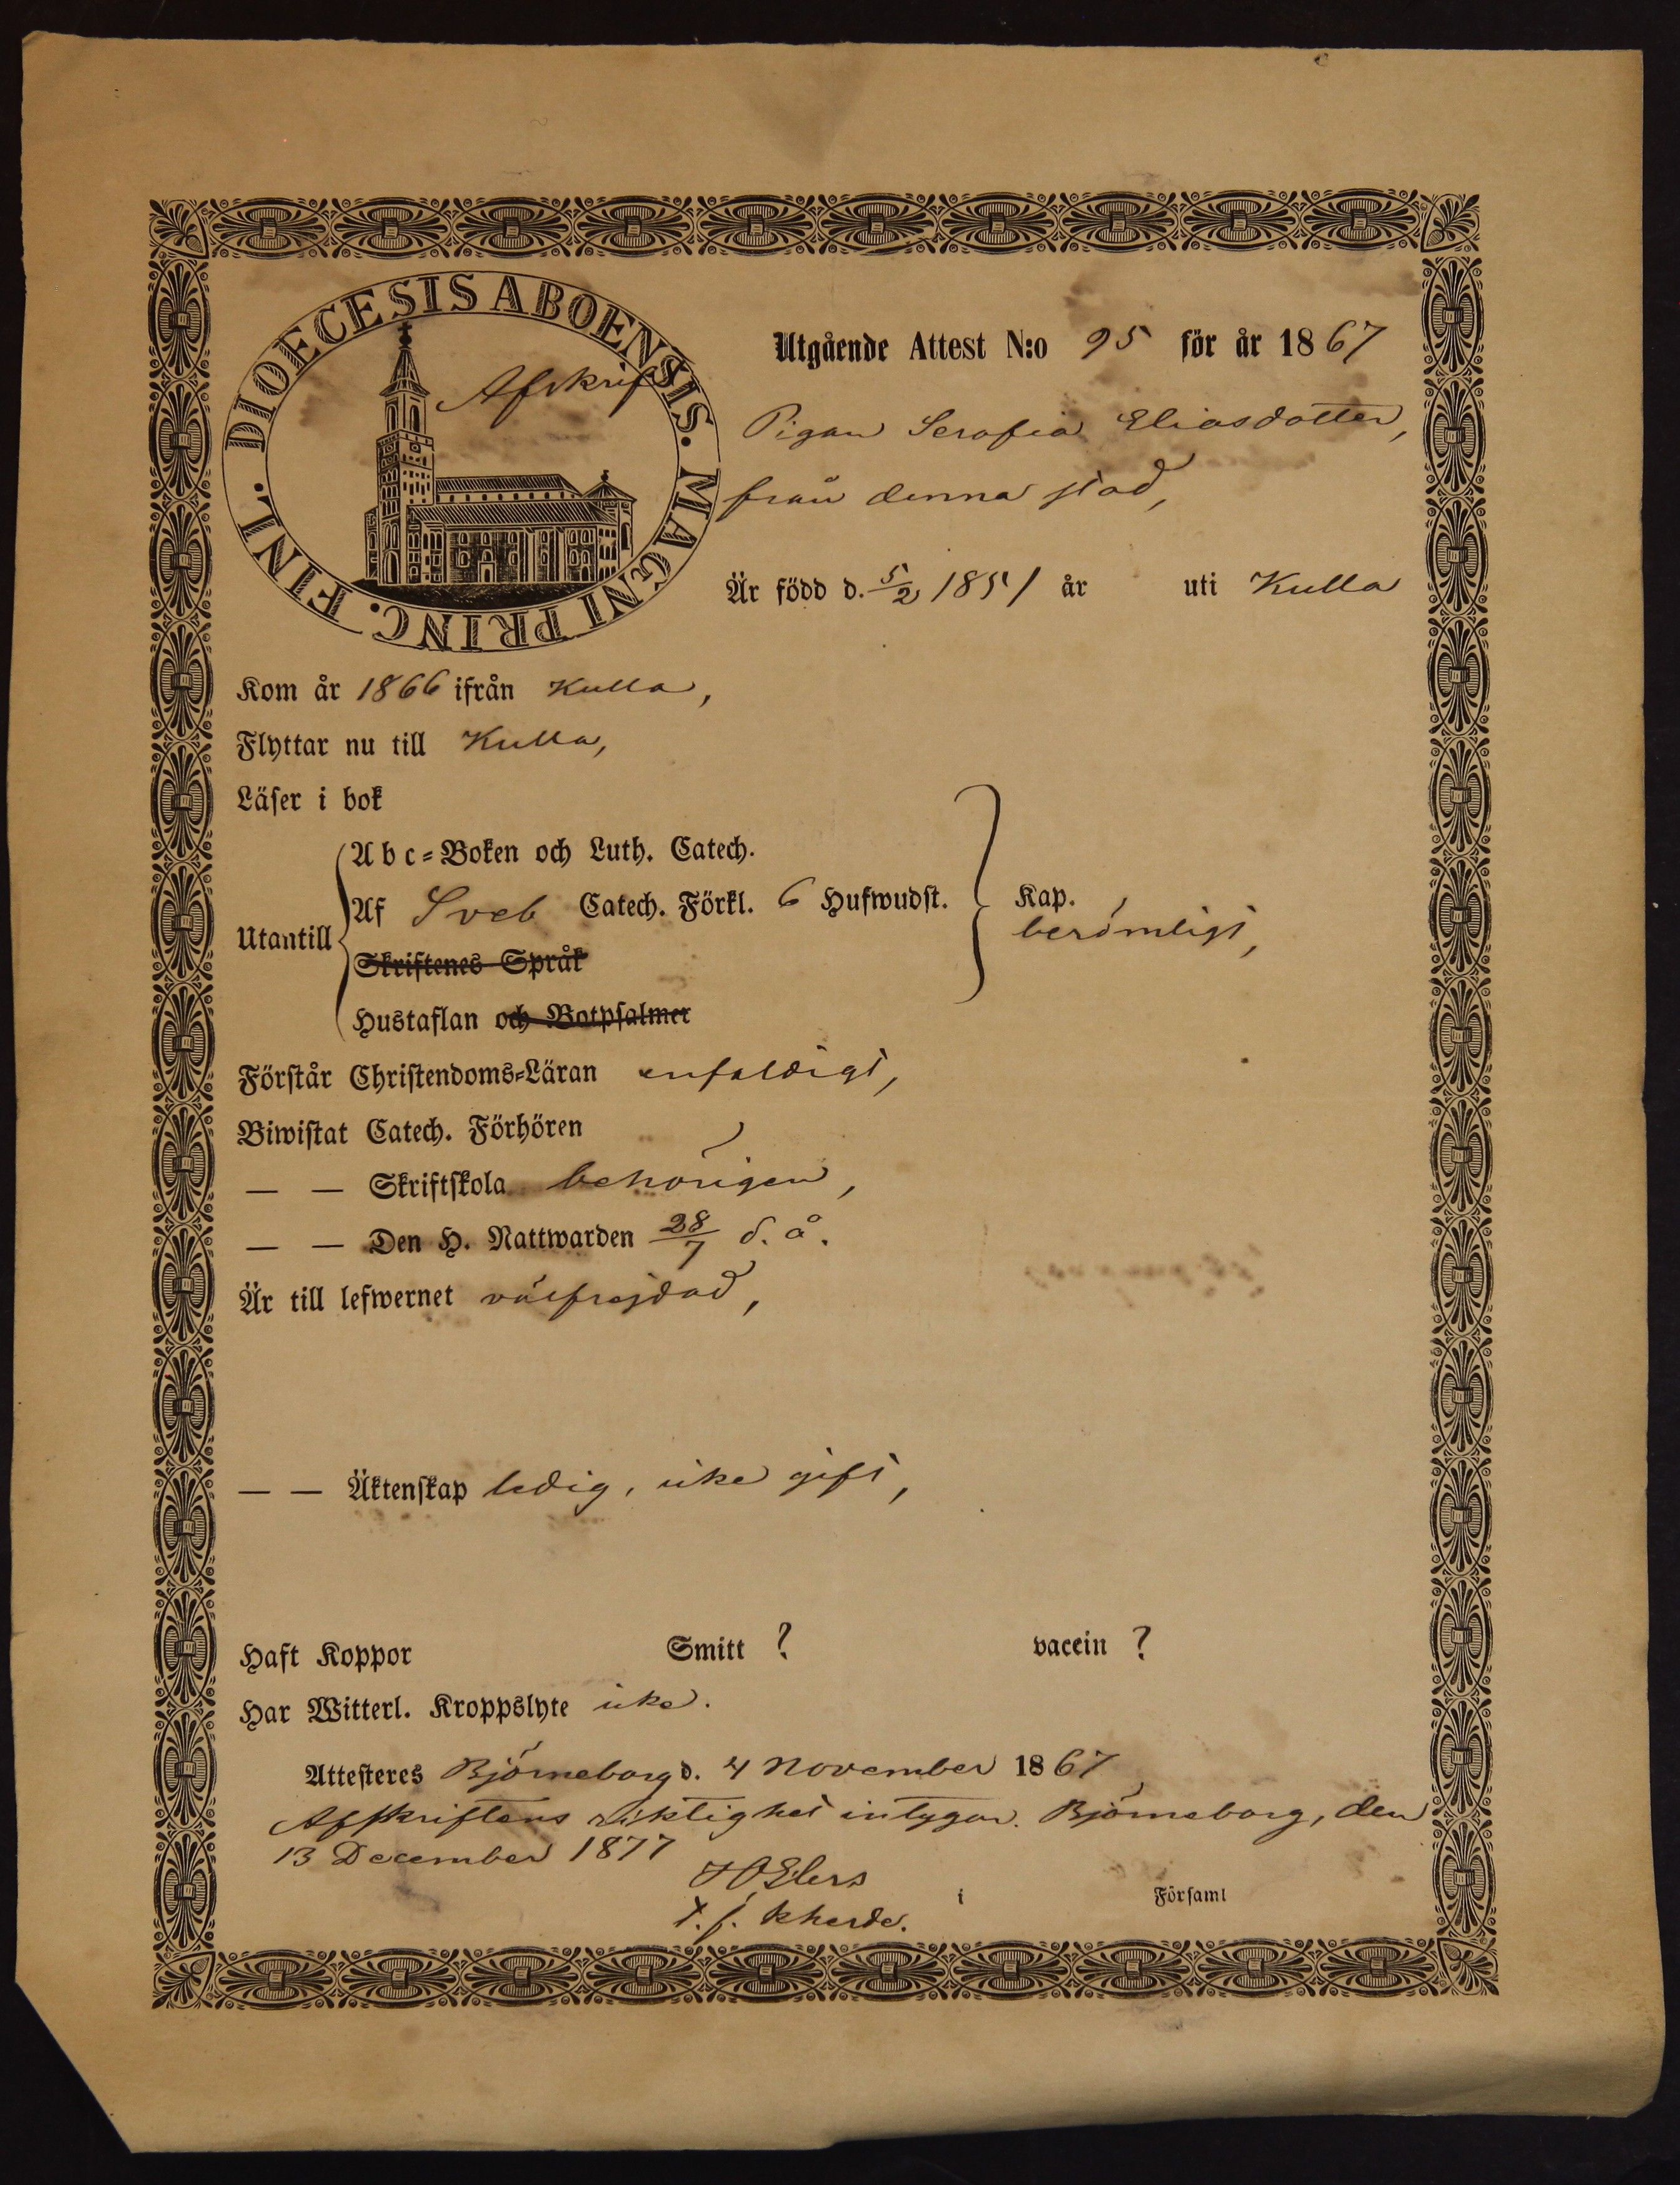 DIOECESIS ABOENSIS. MAGNI PRINC. FINL.
Afskrift
Utgående Attest N:o 95 för år 1867
Pigan Serafia Eliasdotter,
från denna stad,
Är född d. 5/2 1851 år uti Kulla
Kom år 1866 ifrån Kulla,
Flyttar nu till Kulla,
Läser i bok
Utantill
Abc-Boken och Luth. Catech.
Af Sveb Catech. Förkl. 6 Hufwudst.
Kap.
berömligt,
Skriftenes Språk
Hustaflan och Botpsalmer
Förstår Christendoms-Läran enfaldigt,
Biwistat Catech. Förhören
— — Skriftskola behörigen,
— — Den H. Nattwarden 28/7 d. å.
Är till lefwernet välfrejdad,
— — Äktenskap ledig, icke gift,
Haft Koppor Smitt ? vaccin ?
Har Witterl. Kroppslyte icke.
Attesteres Björneborg d. 4 November 1867
Afskriftens riktighet intygar. Björneborg, den
13 December 1877
Elers
t. f. kherde.
i Församl